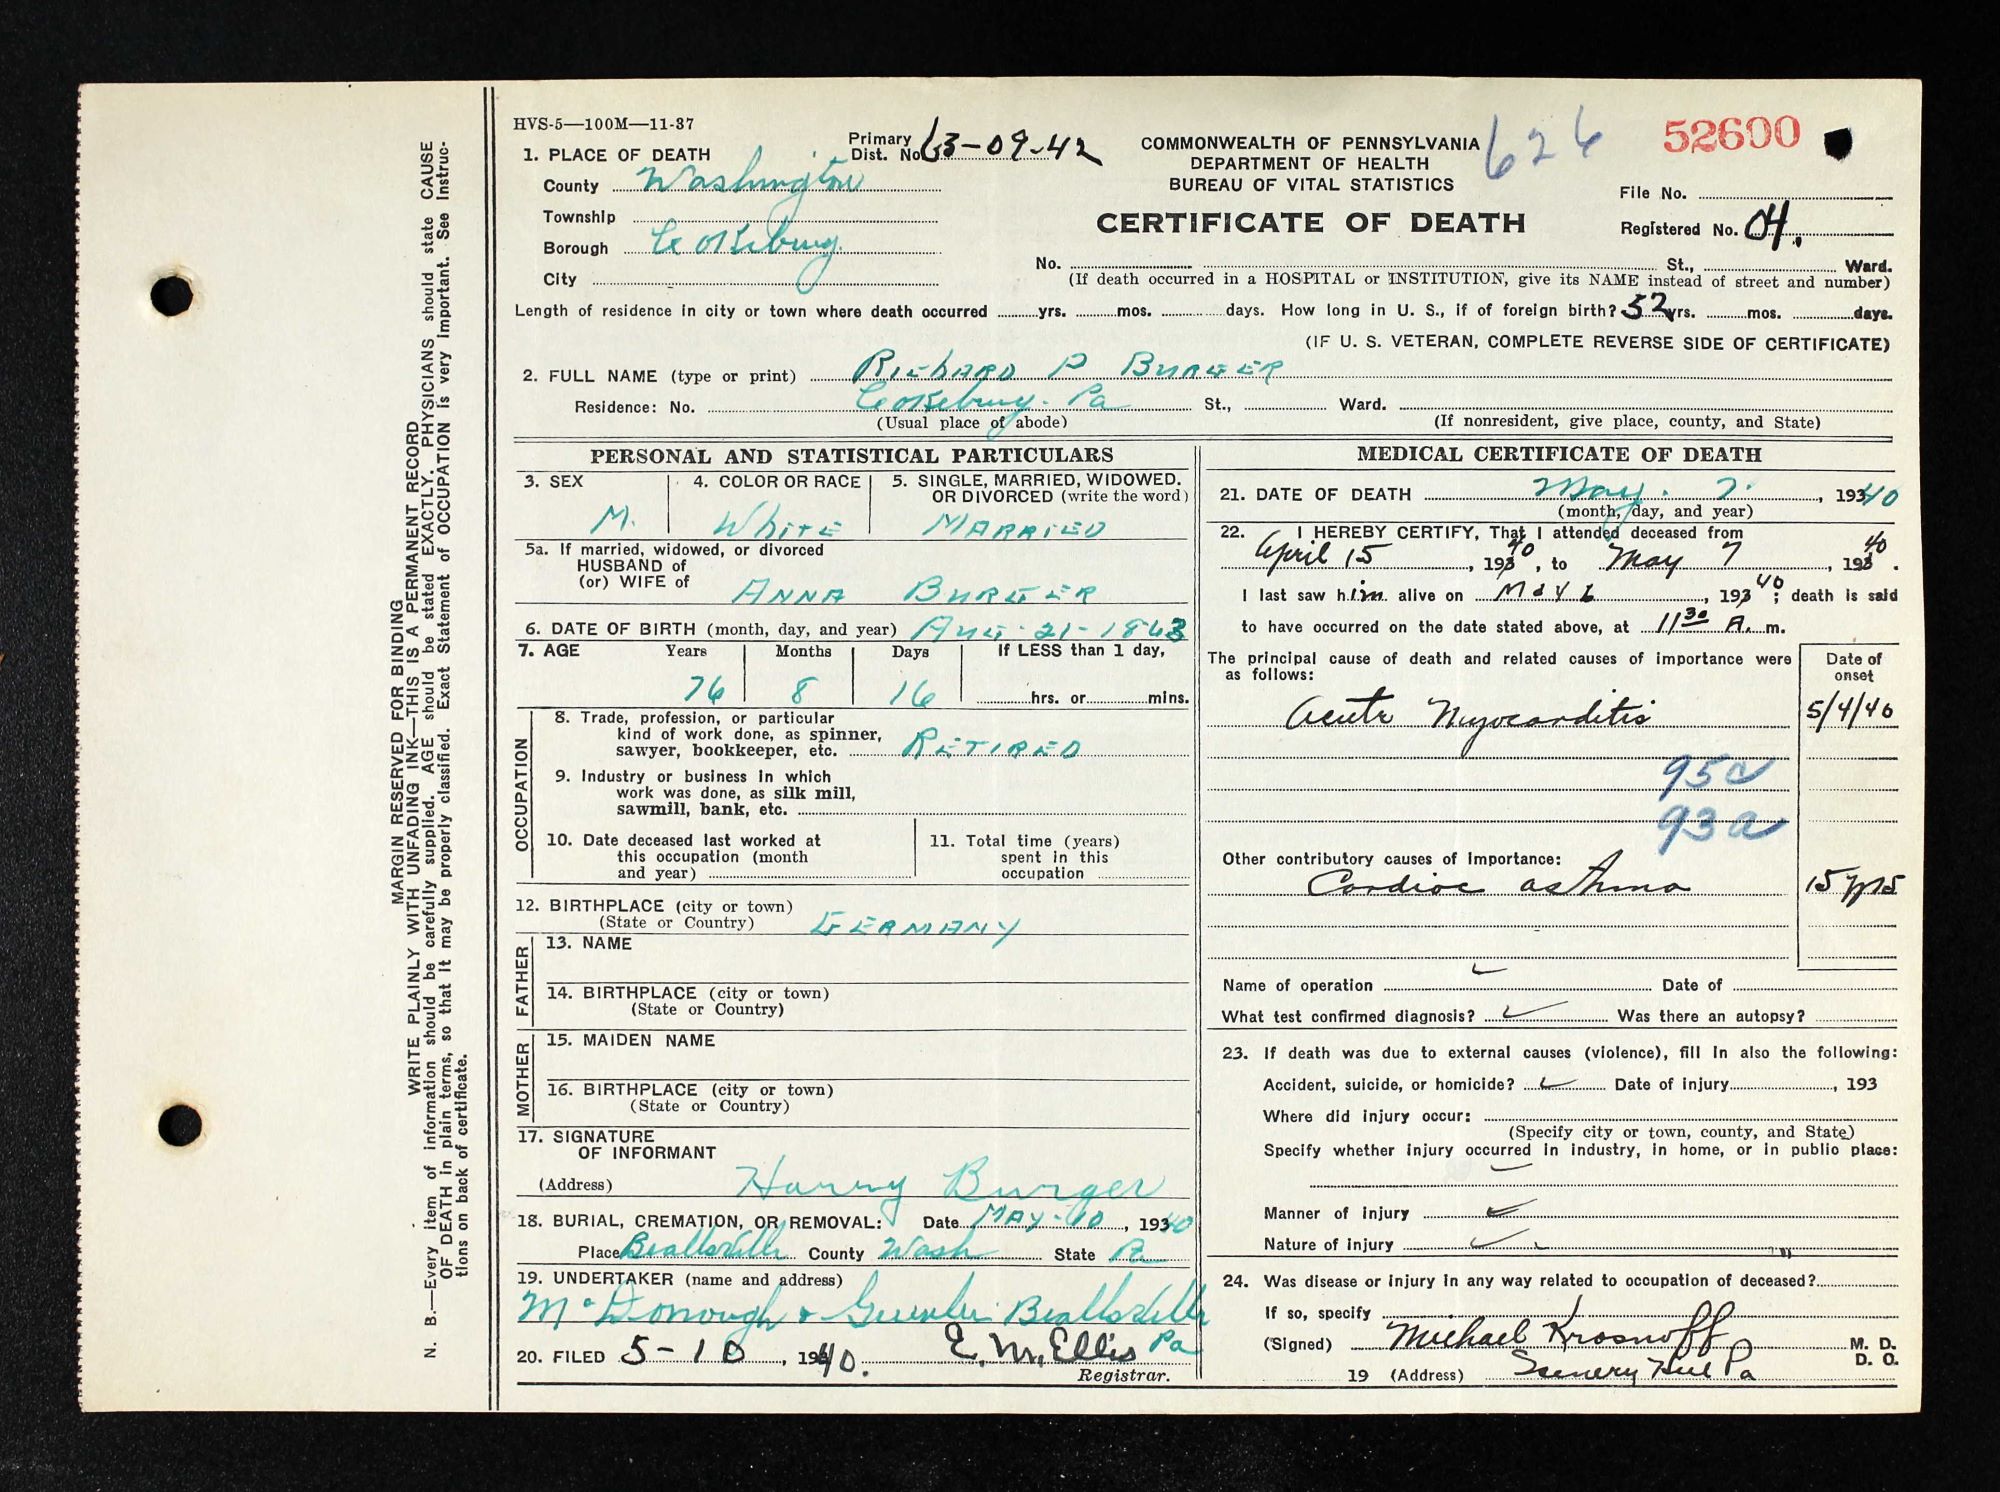 HVS-5—100M—11-37
1. PLACE OF DEATH
Primary Dist. No. 63-09-42
County Washington
Township
Borough Cokeburg
City
COMMONWEALTH OF PENNSYLVANIA
DEPARTMENT OF HEALTH
BUREAU OF VITAL STATISTICS
CERTIFICATE OF DEATH
626
52600
File No.
Registered No. 04.
No. St., Ward.
(If death occurred in a HOSPITAL or INSTITUTION, give its NAME instead of street and number)
Length of residence in city or town where death occurred yrs. mos. days. How long in U. S., if of foreign birth? 52 yrs. mos. days.
(IF U. S. VETERAN, COMPLETE REVERSE SIDE OF CERTIFICATE)
2. FULL NAME (type or print) RICHARD P BURGER
Residence: No. Cokeburg. Pa St., Ward.
(Usual place of abode) (If nonresident, give place, county, and State)
PERSONAL AND STATISTICAL PARTICULARS
3. SEX
M.
4. COLOR OR RACE
WHITE
5. SINGLE, MARRIED, WIDOWED.
OR DIVORCED (write the word)
MARRIED
5a. If married, widowed, or divorced
HUSBAND of
(or) WIFE of
ANNA BURGER
6. DATE OF BIRTH (month, day, and year) AUG-21-1863
7. AGE Years Months Days If LESS than 1 day,
76 8 16 hrs. or mins.
OCCUPATION
8. Trade, profession, or particular
kind of work done, as spinner,
sawyer, bookkeeper, etc. RETIRED
9. Industry or business in which
work was done, as silk mill,
sawmill, bank, etc.
10. Date deceased last worked at
this occupation (month
and year)
11. Total time (years)
spent in this
occupation
12. BIRTHPLACE (city or town)
(State or Country) GERMANY
FATHER
13. NAME
14. BIRTHPLACE (city or town)
(State or Country)
MOTHER
15. MAIDEN NAME
16. BIRTHPLACE (city or town)
(State or Country)
17. SIGNATURE
OF INFORMANT
(Address) Harry Burger
18. BURIAL, CREMATION, OR REMOVAL: Date MAY-10, 19340
Place Beallsville County Wash State Pa
19. UNDERTAKER (name and address)
McDonough & Beallsville
Pa
20. FILED 5-10, 1940. E. M. Ellis
Registrar.
MEDICAL CERTIFICATE OF DEATH
21. DATE OF DEATH May. 7., 19340
(month, day, and year)
22. I HEREBY CERTIFY, That I attended deceased from
April 15, 19340, to May 7, 19340.
I last saw him alive on May 6, 19340; death is said
to have occurred on the date stated above, at 11 30 A. m.
The principal cause of death and related causes of importance were
as follows:
Date of
onset
Acute Myocarditis 5/4/40
95c
93a
Other contributory causes of importance:
Cardiac asthma 15 yrs
Name of operation Date of
What test confirmed diagnosis? Was there an autopsy?
23. If death was due to external causes (violence), fill in also the following:
Accident, suicide, or homicide? Date of injury, 193
Where did injury occur:
(Specify city or town, county, and State)
Specify whether injury occurred in industry, in home, or in public place:
Manner of injury
Nature of injury
24. Was disease or injury in any way related to occupation of deceased?
If so, specify
(Signed) Michael Krosnoff M. D.
D. O.
19 (Address) Scenery Hill Pa
MARGIN RESERVED FOR BINDING
WRITE PLAINLY WITH UNFADING INK—THIS IS A PERMANENT RECORD
N. B.—Every item of information should be carefully supplied. AGE should be stated EXACTLY. PHYSICIANS should state CAUSE
OF DEATH in plain terms, so that it may be properly classified. Exact Statement of OCCUPATION is very important. See Instruc-
tions on back of certificate.